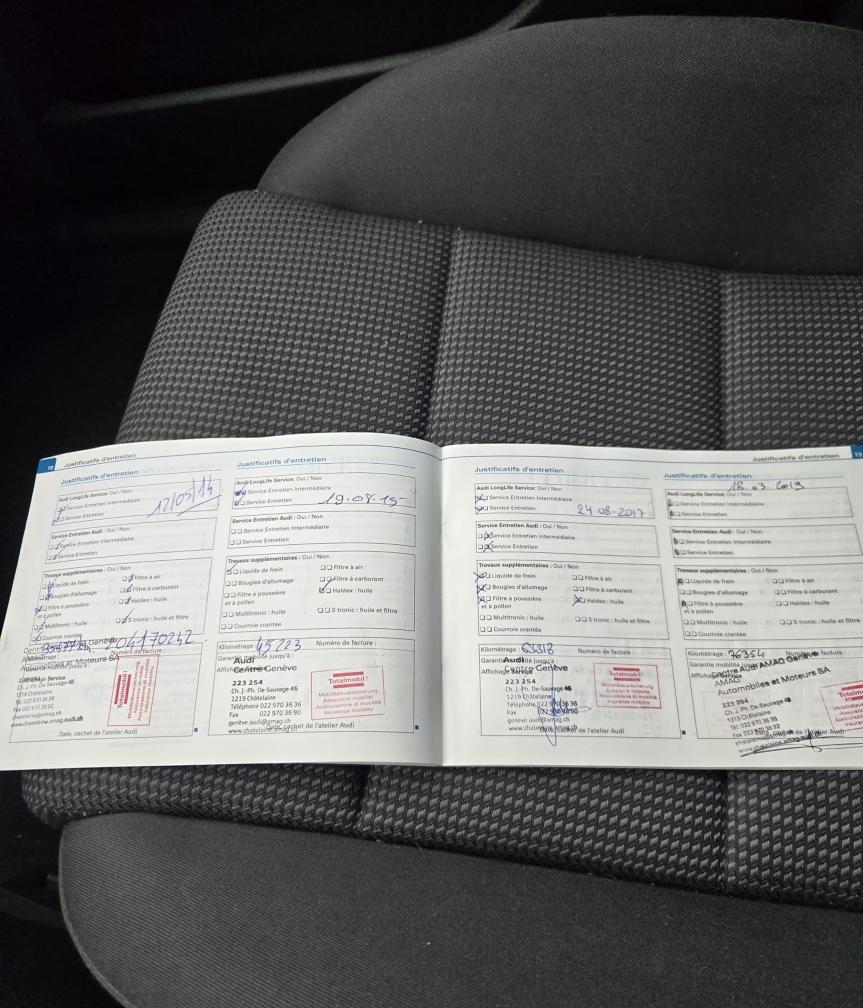 18 Justificatifs d'entretien
Justificatifs d'entretien
Audi LongLife Service: Oui / Non
Service Entretien Intermédiaire
Service Entretien
12/05/14
Service Entretien Audi : Oui / Non
Service Entretien Intermédiaire
Service Entretien
Travaux supplémentaires : Oui / Non
Liquide de frein
Filtre à air
Bougies d'allumage
Filtre à carburant
Filtre à poussière
et à pollen
Haldex : huile
Multitronic : huile
S tronic : huile et filtre
Courroie crantée
204170242
Numéro de facture :
et Moteurs SA
Ch. J.-Ph. De-Sauvage 48
1219 Châtelaine
Tél. 022 970 36 36
www.chatelaine.amag.audi.ch
Totalmobil!
Date, cachet de l'atelier Audi
Justificatifs d'entretien
Audi LongLife Service: Oui / Non
Service Entretien Intermédiaire
Service Entretien
19.08.15
Service Entretien Audi : Oui / Non
Service Entretien Intermédiaire
Service Entretien
Travaux supplémentaires : Oui / Non
Liquide de frein
Filtre à air
Bougies d'allumage
Filtre à carburant
Filtre à poussière
et à pollen
Haldex : huile
Multitronic : huile
S tronic : huile et filtre
Courroie crantée
Kilométrage : 45223
Numéro de facture :
Garantie mobilité jusqu'à :
Audi
Centre Genève
223 254
Ch. J.-Ph. De-Sauvage 46
1219 Châtelaine
Téléphone 022 970 36 36
Fax 022 970 36 90
genève.audi@amag.ch
www.chatelaine.amag.ch
Totalmobil!
Mobilitätsversicherung
Assurance mobilité
Assicurazione di mobilità
Insurance mobility
Date, cachet de l'atelier Audi
Justificatifs d'entretien
Audi LongLife Service: Oui / Non
Service Entretien Intermédiaire
Service Entretien
24-08-2017
Service Entretien Audi : Oui / Non
Service Entretien Intermédiaire
Service Entretien
Travaux supplémentaires : Oui / Non
Liquide de frein
Filtre à air
Bougies d'allumage
Filtre à carburant
Filtre à poussière
et à pollen
Haldex : huile
Multitronic : huile
S tronic : huile et filtre
Courroie crantée
Kilométrage : 63318
Numéro de facture :
Audi
Centre Genève
223 254
Ch. J.-Ph. De-Sauvage 46
1219 Châtelaine
Téléphone 022 970 36 36
Fax
genève.audi@amag.ch
Totalmobil!
Mobilitätsversicherung
Assurance mobilité
Assicurazione di mobilità
Insurance mobility
cachet de l'atelier Audi
Justificatifs d'entretien 19
Justificatifs d'entretien
18.03.2019
Audi LongLife Service: Oui / Non
Service Entretien Intermédiaire
Service Entretien
Service Entretien Audi : Oui / Non
Service Entretien Intermédiaire
Service Entretien
Travaux supplémentaires : Oui / Non
Liquide de frein
Filtre à air
Bougies d'allumage
Filtre à carburant
Filtre à poussière
et à pollen
Haldex : huile
Multitronic : huile
S tronic : huile et filtre
Courroie crantée
Kilométrage : 76354
Garantie mobilité jusqu'à :
Centre Audi AMAG Genève
AMAG
Automobiles et Moteurs SA
223 254
Ch. J.-Ph. De-Sauvage 46
1219 Châtelaine
Tél. 022 970 36 36
de l'atelier Audi